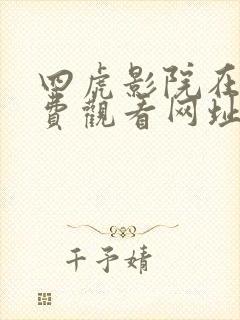 四虎影院在
费觀看网址
千予婧